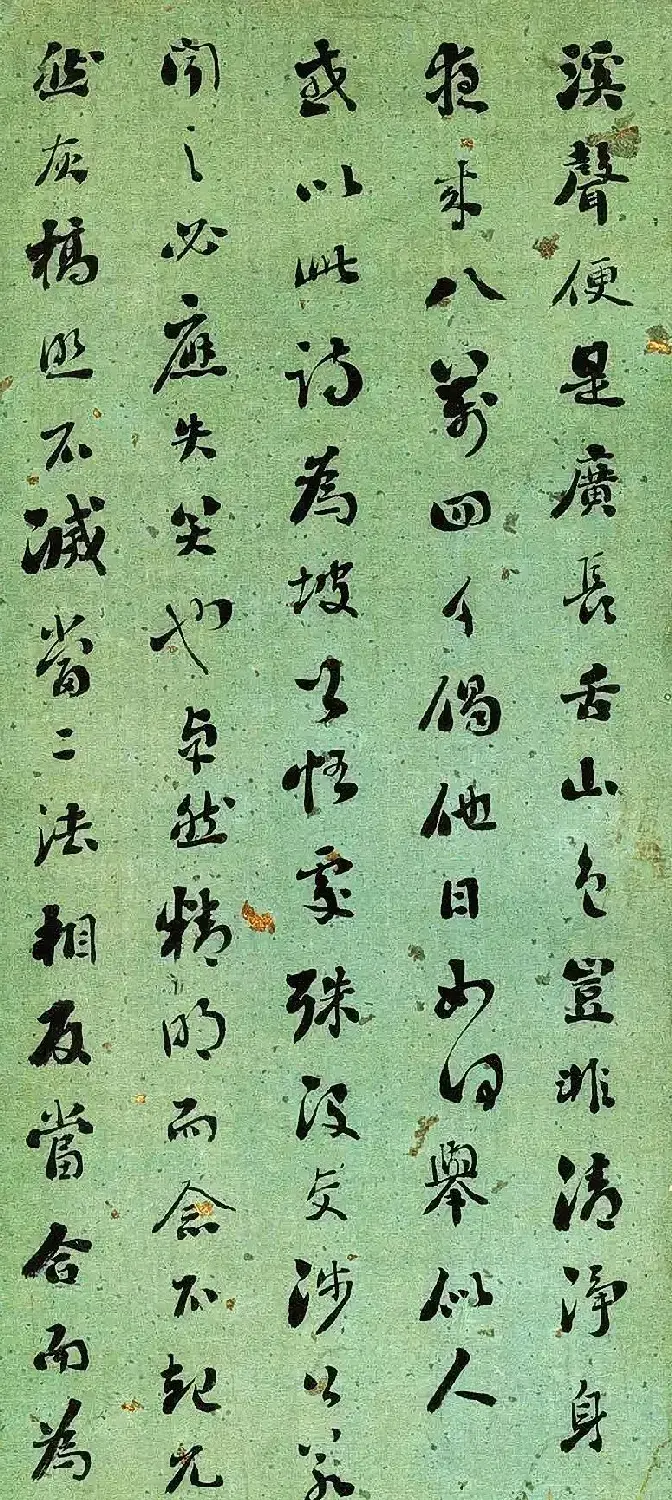 溪聲便是廣長舌山色豈非清淨身
夜來八萬四千偈他日如何舉似人
或以此詩為坡公悟處殊沒交涉公若
聞之必應失笑也卓然精明而念不起兀
然灰槁照不滅當二法相反當合而為